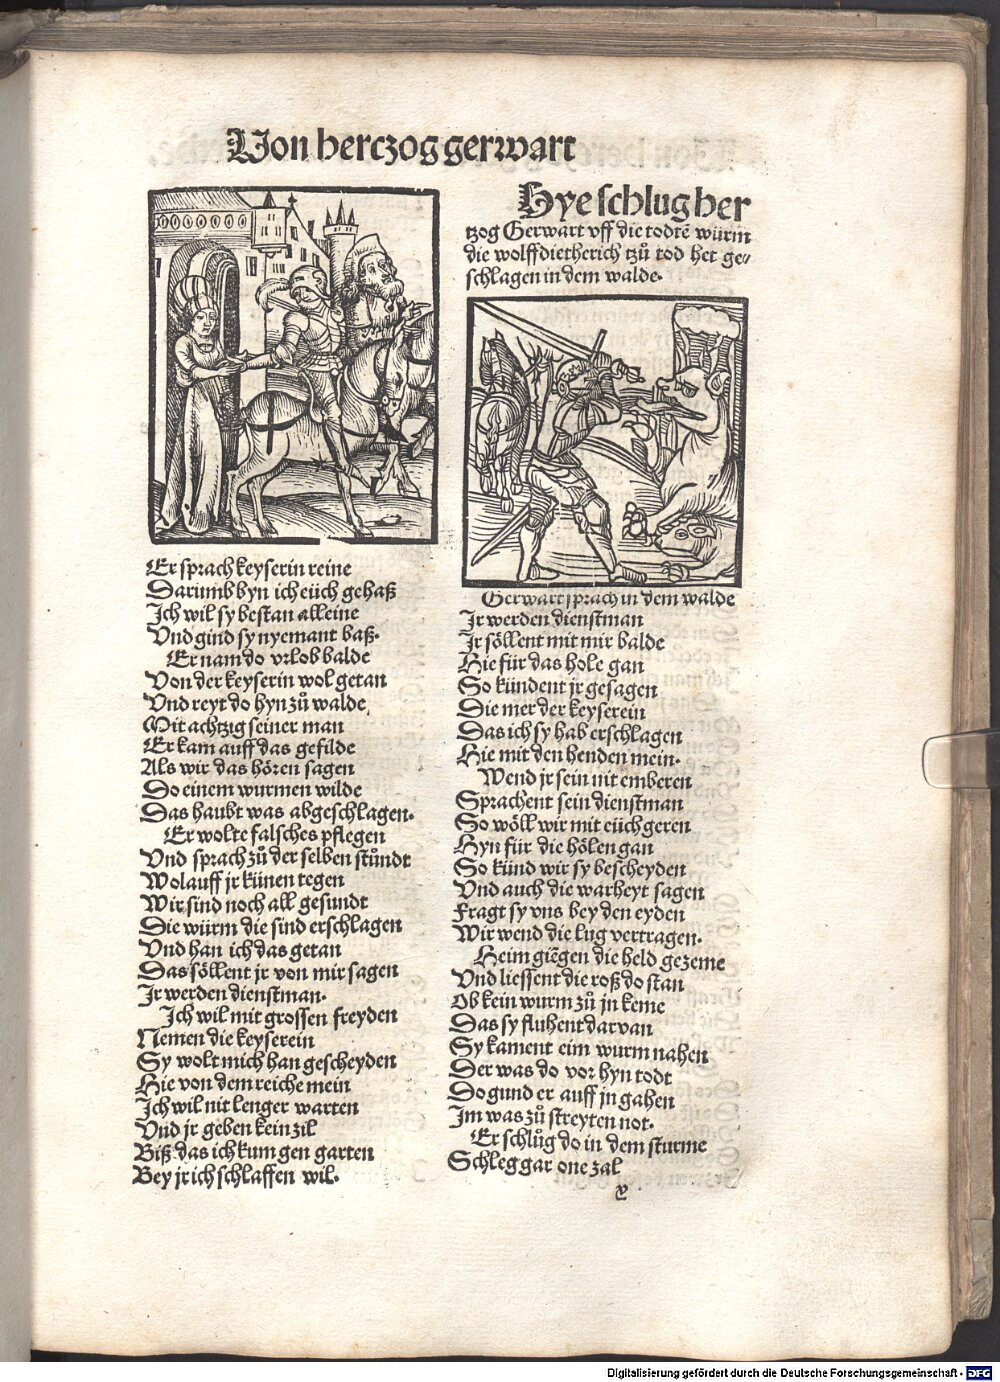 Von herczog gerwart
Er sprach keyserin reine
Darumb byn ich eüch gehaß
Ich wil sy bestan alleine
Vnd gind sy nyemant baß.
Er nam do vrlob balde
Von der keyserin wol getan
Vnd reyt do hyn zů walde
Mit achtzig seiner man
Er kam auff das gefilde
Als wir das hören sagen
Do einem wurmen wilde
Das haubt was abgeschlagen.
Er wolte falsches pflegen
Vnd sprach zů der selben stůndt
Wolauff jr künen tegen
Wir sind noch all gesundt
Die würm die sind erschlagen
Vnd han ich das getan
Das söllent jr von mir sagen
Ir werden dienstman.
Ich wil mit grossen freyden
Nemen die keyserein
Sy wolt mich han gescheyden
Hie von dem reiche mein
Ich wil nit lenger warten
Vnd jr geben kein zil
Biß das ich kum gen garten
Bey jr ich schlaffen wil.
Hye schlug her
tzog Gerwart vff die todtē würm
die wolffdietherich tzů tod het ge⸗
schlagen in dem walde.
Gerwart sprach in dem walde
Jr werden dienstman
Jr söllent mit mir balde
Hie für das hole gan
So kündent jr gesagen
Die mer der keyserein
Das ich sy hab erschlagen
Hie mit den henden mein.
Wend jr sein nit emberen
Sprachent sein dienstman
So wöll wir mit eüch geren
Hyn für die hölen gan
So künd wir sy bescheyden
Vnd auch die warheyt sagen
Fragt sy vns bey den eyden
Wir wend die lug vertragen.
Heim giēgen die held gezeme
Vnd liessent die roß do stan
Ob kein wurm zů jn keme
Das sy fluhent darvan
Sy kament eim wurm nahen
Der was do vor hyn todt
Do gund er auff jn gahen
Im was zů streyten not.
Er schlůg do in dem sturme
Schleg gar one zal
v
Digitalisierung gefördert durch die Deutsche Forschungsgemeinschaft - DFG